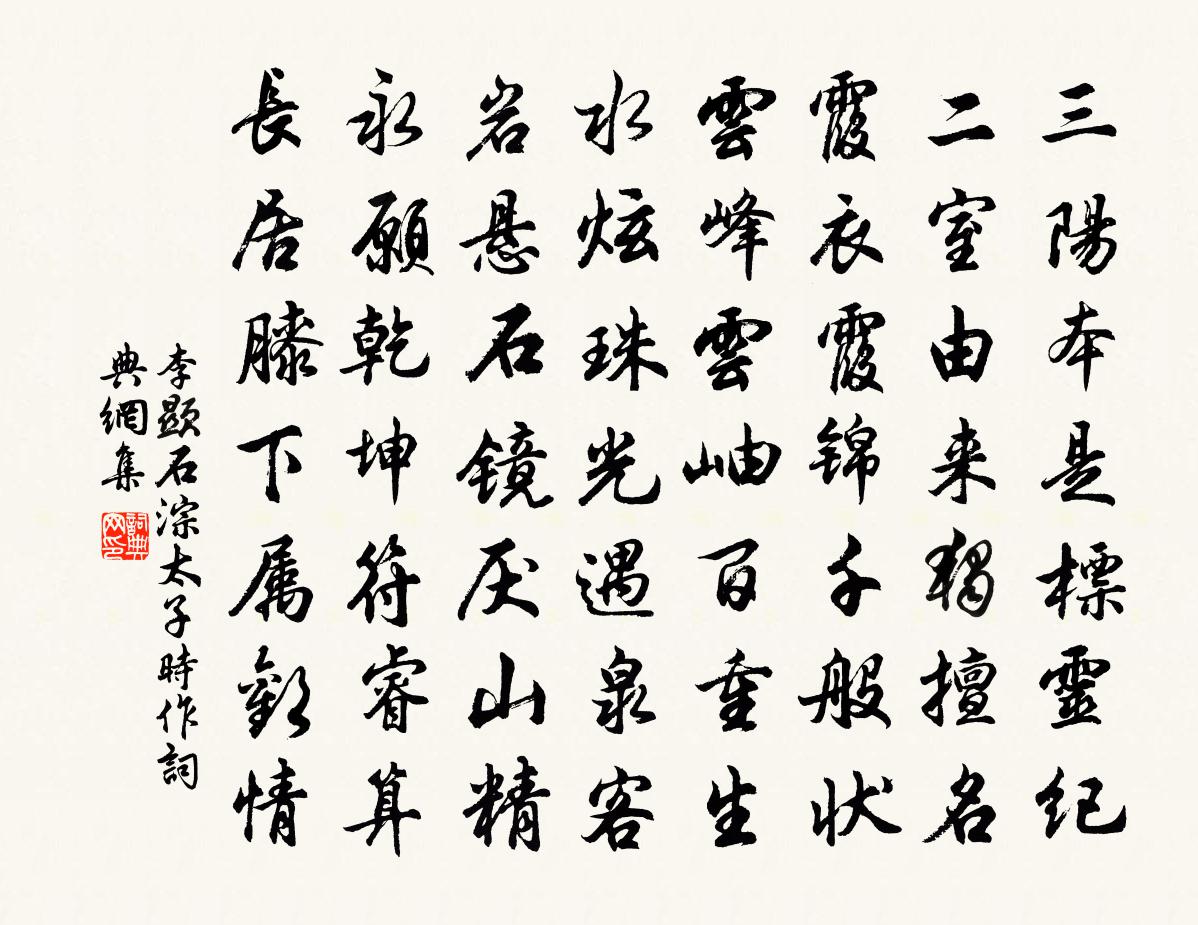 三陽本是標靈紀
二室由来獨擅名
霞衣霞锦千般狀
雲峰雲岫百重生
水炫珠光遇泉客
岩悬石镜厌山精
永願乾坤符睿算
長居膝下属歡情
李顯石淙太子時作詞
典網集
詞典
网印